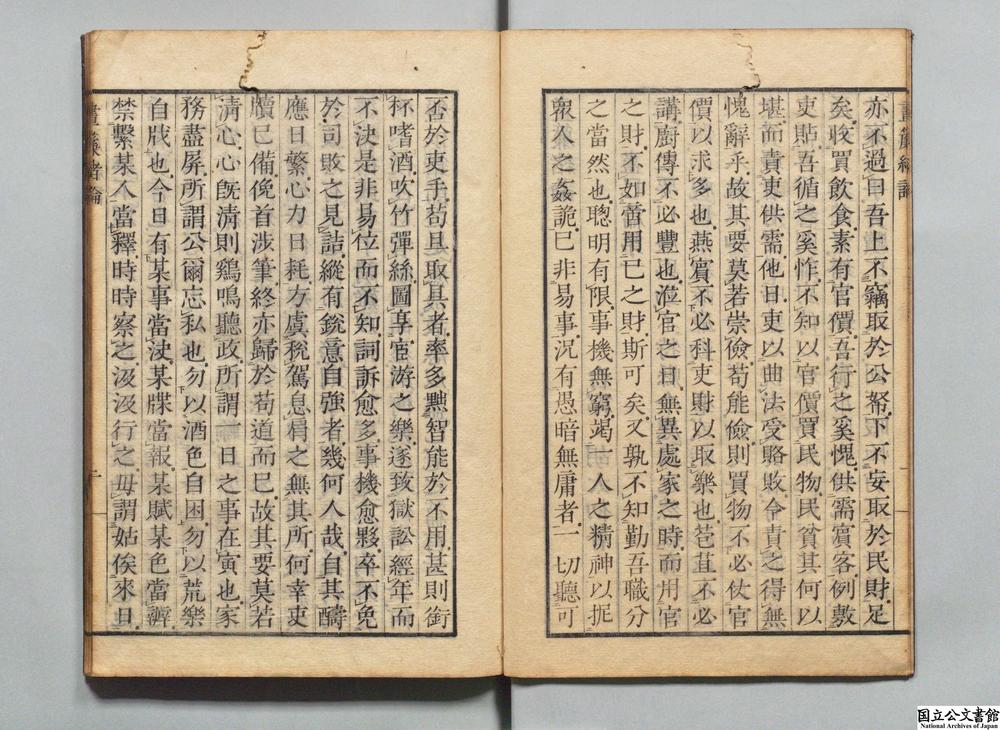 晝簾緒論
亦不過曰吾上不竊取於公帑下不妄取於民財足
矣收買飲食素有官價吾行之奚愧供需賓客例敷
吏貼吾循之奚怍不知以官價買民物民貧其何以
堪而責吏供需他日吏以曲法受賂敗令責之得無
愧辭乎故其要莫若崇儉苟能儉則買物不必仗官
價以求多也燕賓不必科吏財以取樂也苞苴不必
講厨傳不必豐也涖官之日無異處家之時而用官
之財不如啻用已之財斯可矣又孰不知勤吾職分
之當然也聰明有限事機無窮竭一人之精神以扼
衆人之姦詭已非易事況有愚暗無庸者一切聽可
否於吏手苟且取具者率多黠智能於不用甚則銜
杯嗜酒吹竹彈絲圖享宦游之樂遂致獄訟經年而
不決是非易位而不知詞訴愈多事機愈夥卒不免
於司敗之見詰縱有銳意自強者幾何人哉自其醻
應日繁心力日耗方虞稅駕息肩之無其所何幸吏
牘已備俛首涉筆終亦歸於苟道而已故其要莫若
清心心旣清則鷄鳴聽政所謂一日之事在寅也家
務盡屏所謂公爾忘私也勿以酒色自困勿以荒樂
自戕也今日有某事當決某牒當報某賦某色當辦
禁繫某人當釋時時察之汲汲行之毋謂姑俟來日
晝簾緒論
国立公文書館
National Archives of Japan